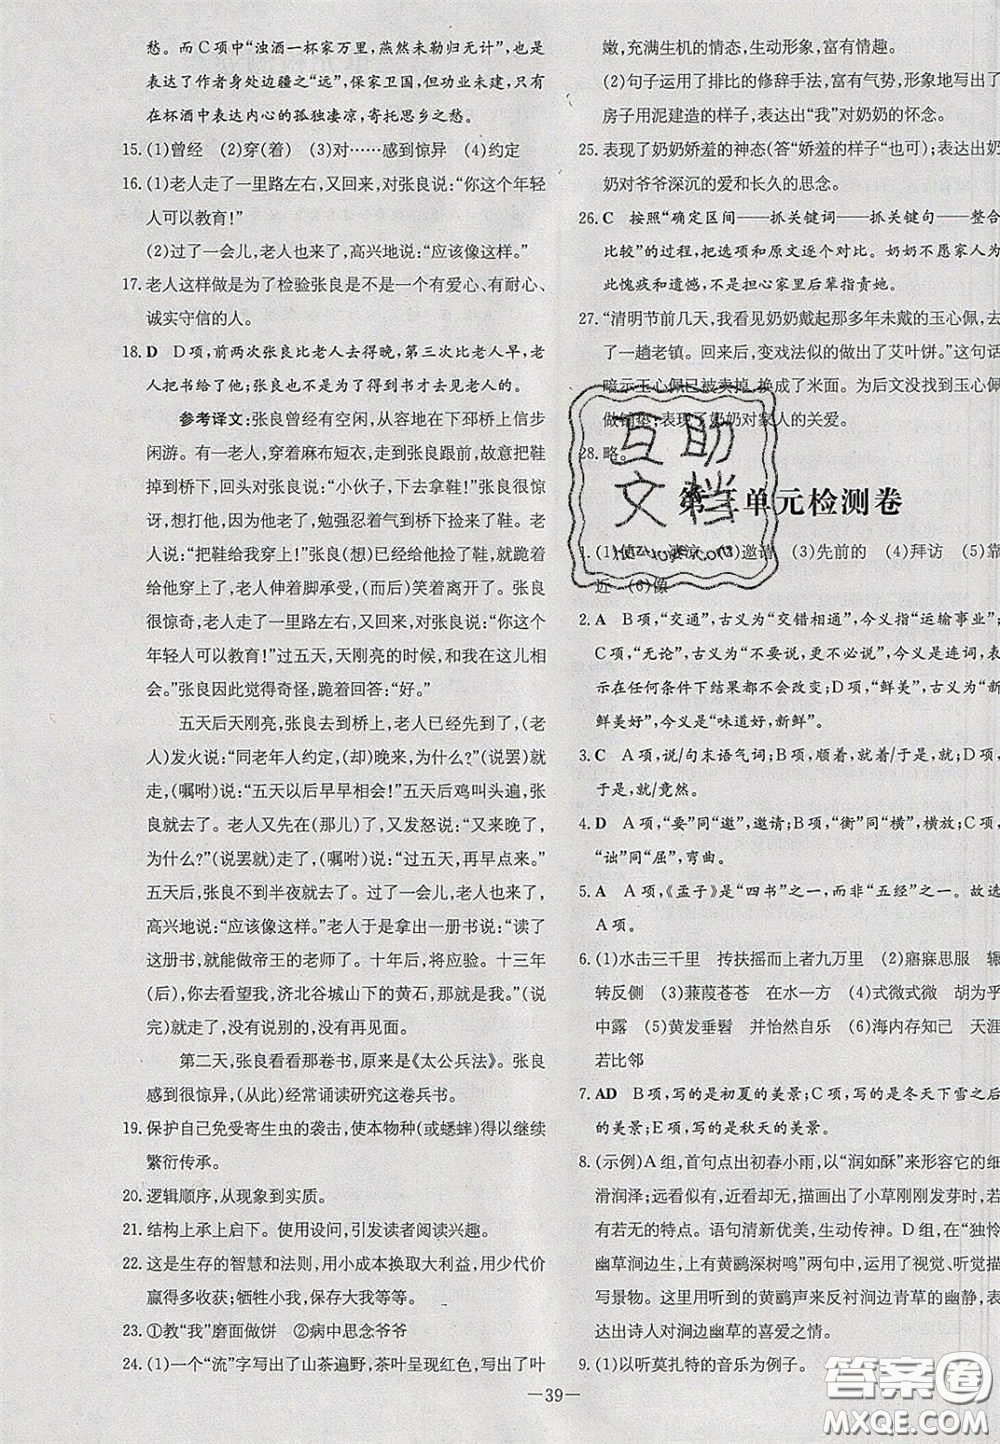 愁。而C项中“浊酒一杯家万里,燕然未勒归无计”,也是
表达了作者身处边疆之“远”,保家卫国,但功业未建,只
能在杯酒中表达内心的孤独凄凉,寄托思乡之愁。
15. (1)曾经 (2)穿(着) (3)对……感到惊异 (4)约定
16. (1)老人走了一里路左右,又回来,对张良说:“你这个年轻
人可以教育!”
(2)过了一会儿,老人来了,高兴地说:“应该像这样。”
17. 老人这样做是为了检验张良是不是一个有爱心、有耐心、
诚实守信的人。
18. D D项,前两次张良比老人去得晚,第三次比老人早,老
人把书给了他;张良也不是为了得到书才去见老人的。
参考译文:张良曾经有空闲,从容地在下邳桥上信步
闲游。有一老人,穿着麻布短衣,走到张良跟前,故意把鞋
掉到桥下,回头对张良说:“小伙子,下去捡鞋!”张良很惊
讶,想打他。因为他老了,勉强忍着气到桥下捡来了鞋,老
人说:“把鞋给我穿上!”张良(想)已经捡来了鞋,就跪着
给他穿上鞋。老人把脚伸给张良穿上鞋,笑着离开。张良
很惊奇,老人走了一里路左右,又回来,对张良说:“你这个
年轻人可以教育!过五天,天刚亮的时候,和我在这儿相
会。”张良因此觉得奇怪,跪着回答:“好。”
五天后天刚亮,张良去到桥上,老人已经先到了,(老
人)发火说:“同老年人约定,(却)晚来,为什么?”(说罢)就
走了,(嘱咐)说:“五天以后早早相会!”五天后鸡叫头遍,张
良就前往。老人又先在(那儿)了,又发怒说:“又来晚了,
为什么?”(说罢)就走了,(嘱咐)说:“过五天,再早点来。”
五天后,张良不到半夜就去了。过了一会儿,老人来了,
高兴地说:“应该像这样。”老人于是拿出一册书说:“读了
这本书,能够做帝王的老师了。十年后,将应验。十三年
(后),(你)就会看到我,济北谷城山下的黄石,就是我。”(说
完)就走了,没有说别的,没有再见面。
第二天,张良看看那卷书,原来是《太公兵法》。张良
感到很惊异,(从此)经常诵读研究这卷兵书。
19. 保护自己免受寄生虫的袭击,使本物种(或蟋蟀)得以继续
繁衍传承。
20. 逻辑顺序,从现象到实质。
21. 结构上承上启下。使用设问,引发读者阅读兴趣。
22. 这是生存的智慧和法则,用小成本换取大利益,用少代价
赢得多收获;牺牲小我,保存大我等等。
23. ①教“我”磨面做饼 ②病中思念爷爷
24. (1)一个“流”字写出了山茶遍野,茶叶呈现红色,写出了叶
嫩,充满生机的情态,生动形象,富有情趣。
(2)句子运用了排比的修辞手法,富有气势,形象地写出了
房子用泥建造的特点,表达出“我”对奶奶的怀念。
25. 表现了奶奶娇羞的神态(答“娇羞的样子”也可);表达出奶
奶对爷爷深沉的爱和长久的思念。
26. C 按照“确定区间——抓关键词——抓关键句——整合
比较”的过程,把选项和原文逐个对比。奶奶不愿家人为
此愧疚和遗憾,不是担心家里后辈指责她。
27. “清明节前几天,我看见奶奶戴起那多年未戴的玉心佩,去
了一趟老镇。回来后,变戏法似的做出了艾叶饼。”这句话
暗示玉心佩已被卖掉,换成了米面。为后文没找到玉心佩
做铺垫;表现了奶奶对家人的关爱。
28. 略。
第三单元检测卷
1. 凄凉 (2)邀请 (3)先前的 (4)拜访 (5)靠
近 (6)像
2. A B项,“交通”,古义为“交错相通”,今义指“运输事业”;
C项,“无论”,古义为“不要说,更不必说”,今义是连词,表
示在任何条件下结果都不会改变;D项,“鲜美”,古义是“新
鲜美好”,今义是“味道好,新鲜”。
3. C A项,说/句末语气词;B项,接着,就/于是,就;D项,
于是,就/竟然。
4. D A项,“要”同“邀”,邀请;B项,“衡”同“横”,横放;C项,
“诎”同“屈”,弯曲。
5. A A项,《孟子》是“四书”之一,而非“五经”之一。故选
A项。
6. (1)水击三千里 抟扶摇而上者九万里 (2)寤寐思服 辗
转反侧 (3)蒹葭苍苍 在水一方 (4)式微式微 胡为乎
中露 (5)黄发垂髫 并怡然自乐 (6)海内存知己 天涯
若比邻
7. AD B项,写的是初夏的美景;C项,写的是冬天下雪之后
的美景;E项,写的是秋天的美景。
8. (示例)A组,首句点出初春小雨,以“润如酥”来形容它的细
滑润泽;第二句紧承首句,描画出了小草刚刚发芽时,若
有若无的特点。语句清新优美,生动传神。D组,在“独怜
幽草涧边生,上有黄鹂深树鸣”两句中,运用了视觉、听觉描
写景物。这里用听到的黄鹂声来反衬涧边青草的幽静,表
达出诗人对涧边幽草的喜爱之情。
9. (1)以听莫扎特的音乐为例子。
—39—
互助
文档
HUZHUWENDANG.COM
答案圈
MXQE.COM